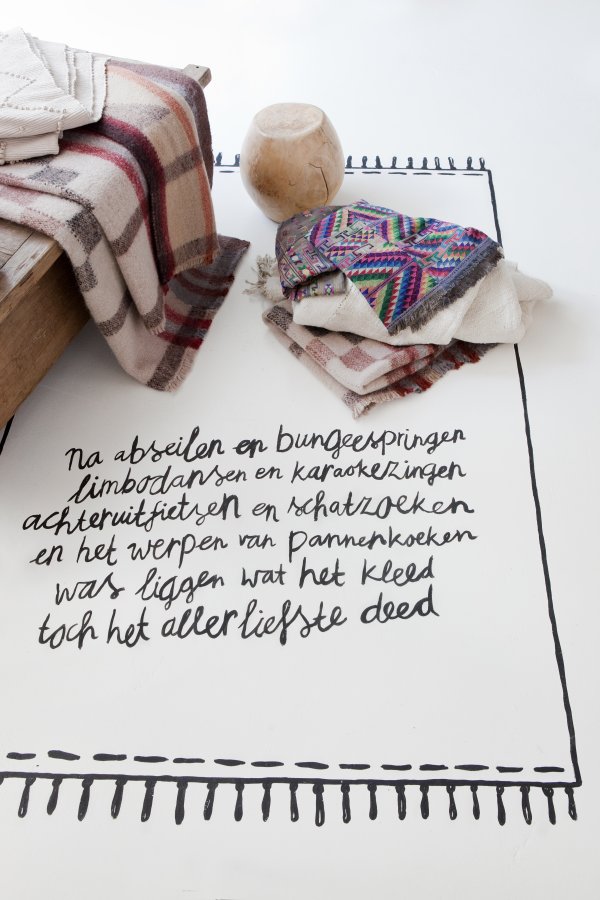 na abseilen en bungeespringen
limbodansen en karaokezingen
achteruitfietsen en schatzoeken
en het werpen van pannenkoeken
was liggen wat het kleed
toch het allerliefste deed